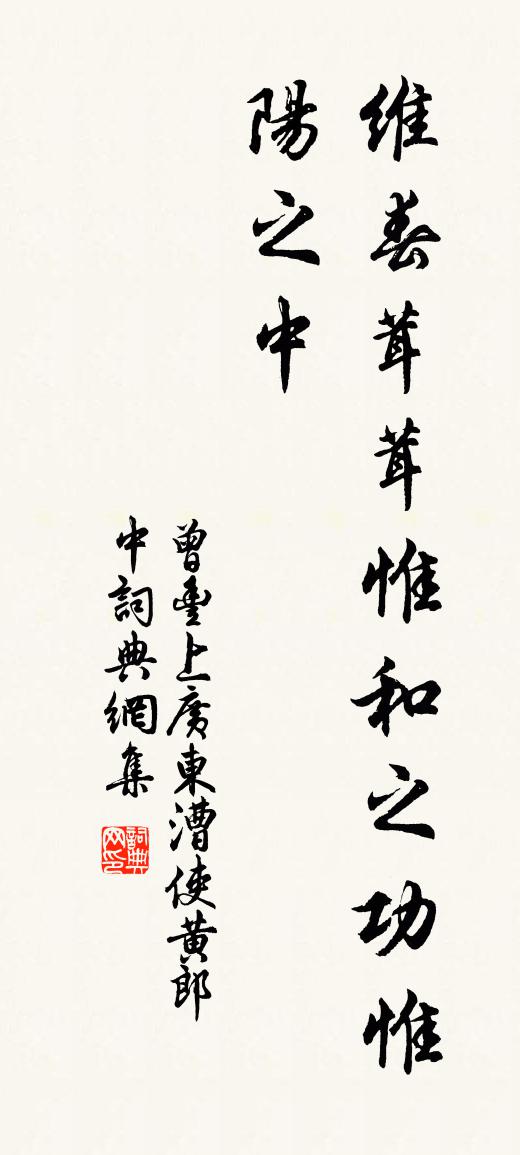 維春茸茸惟和之功惟
陽之中
曾豐上廣東漕使黄郎
中詞典網集
詞典
网印